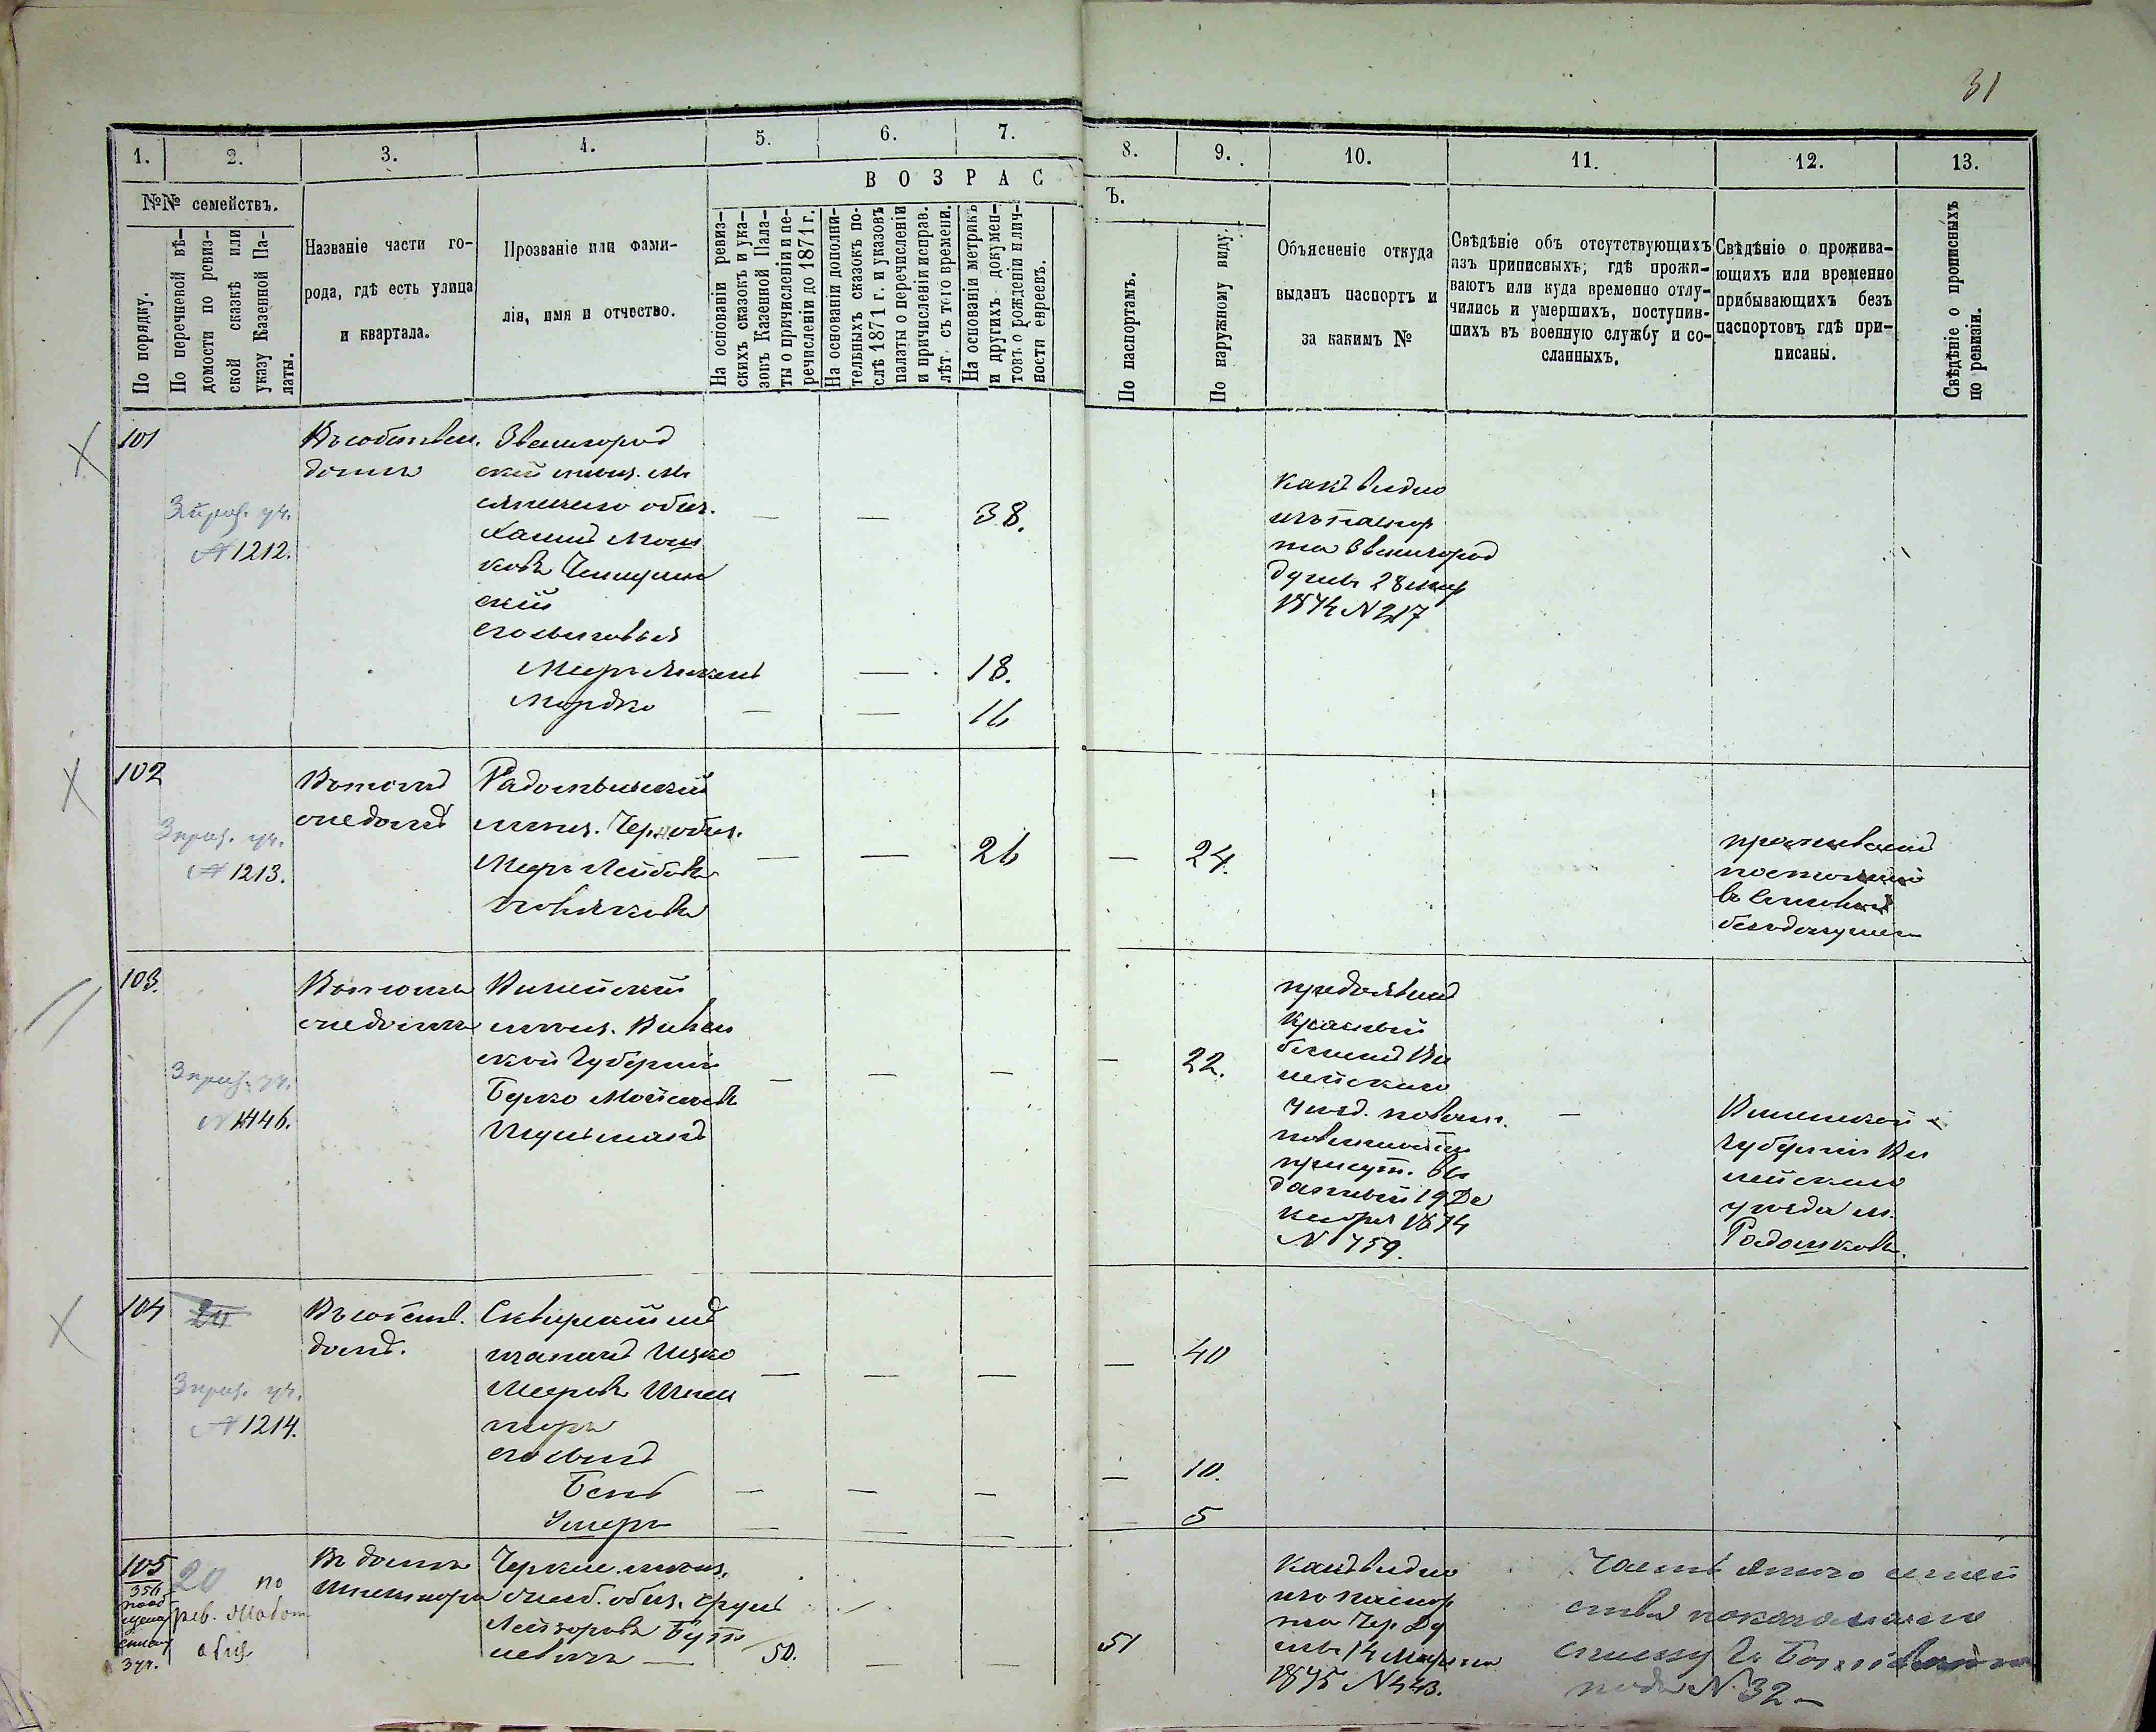 31
1. 2. 3. 4. 5. 6. 7. 8. 9. 10. 11. 12. 13.
В О З Р А С Ъ.
№№ семействъ.
По порядку.
По перечневой вѣ-
домости по ревиз-
ской сказкѣ или
указу Казенной Па-
латы.
Названіе части го-
рода, гдѣ есть улица
и квартала.
Прозваніе или фами-
лія, имя и отчество.
На основаніи ревиз-
скихъ сказокъ и ука-
зовъ Казенной Пала-
ты о причисленіи и пе-
речисленіи до 1871 г.
На основаніи дополни-
тельныхъ сказокъ по-
слѣ 1871 г. и указовъ
палаты о перечисленіи
и причисленіи исправ.
лѣт съ того времени.
На основаніи метрикъ
и другихъ докумен-
товъ о рожденіи и лич-
ности евреевъ.
По паспортамъ.
По наружному виду.
Объясненіе откуда
выданъ паспортъ и
за какимъ №
Свѣдѣніе объ отсутствующихъ
изъ приписныхъ; гдѣ прожи-
ваютъ или куда временно отлу-
чились и умершихъ, поступив-
шихъ въ военную службу и со-
сланныхъ.
Свѣдѣніе о прожива-
ющихъ или временно
прибывающихъ безъ
паспортовъ гдѣ при-
писаны.
Свѣдѣніе о прописныхъ
по ревизіи.
101
3 приз. уч.
№ 1212.
Въ собствен.
домѣ
Звенигород
скій мѣщ.
общ.
Хаимъ Мош
ковъ
скій
его сыновья
Меер
Мордко
38.
18.
16
Какъ видно
изъ паспор
та Звенигород
думы 28 мар
1874 № 217
102
3 приз. уч.
№ 1213.
Въ томъ
же домѣ
Радомысльскій
мѣщ. Черноб. общ.
Меер Лейбовъ
26
24.
проживаетъ
постоянно
103.
3 приз. уч.
№ 1446.
Въ томъ
же домѣ
Вилейскій
мѣщ. Вилен
ской Губерніи
Берко Мойсеевъ
Шульманъ
22.
предъявилъ
красный
билетъ Ви
лейскаго
уѣзд. по воин.
повинности
присут. вы
данный 19 Де
кабря 1874
№ 759.
Виленской
губерніи Ви
лейскаго
уѣзда м.
Радошковъ.
104
3 приз. уч.
№ 1214.
Въ собств.
домѣ.
Сквирскій мѣ
щанинъ Ицко
Мееровъ Шпек
торъ
его сынъ
Бень
Умеръ
40
10.
5
105
356
20 по
рев. Жабот
общ
3 уч.
Въ домѣ
Шпектора
Черкас. мѣщ.
жаб. общ. Сруль
Лейзоровъ Бут
невичъ
50.
51
Какъ видно
изъ паспор
та Чер. Ду
мы 14 Марта
1875 № 443.
Часть этого семей
ства показана по
списку
подъ № 32